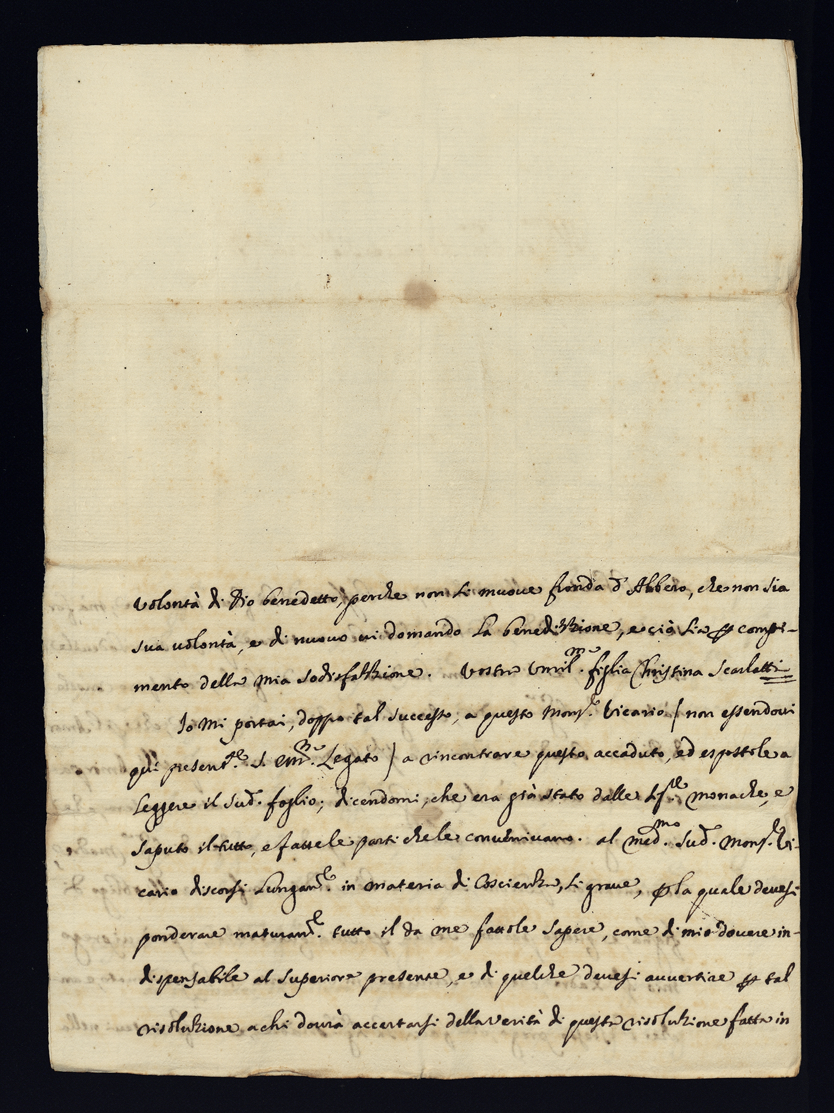 volontà di Dio benedetto, perche non si muove fronda d'Albero, che non sia
sua volontà, e di nuovo vi domando la benedizzione, e ciò sia p compi-
mento della mia sodisfazzione. Vostra Umil.ma figlia Christina Scarlatti
Io mi portai, doppo tal successo, a questo Mons.re Vicario / non essendovi
qui presentem.te S. Em.za Legato / a rincontrare questo accaduto, ed espostole a
Leggere il sud.o foglio; dicendomi, che era già stato dalle monache, e
saputo il tutto, e fattele parti che le convenivano. al med.mo sud.o Mons.re Vi-
cario discorsi Lungam.te in materia di Coscienza, si grave, p la quale devesi
ponderare maturam.te tutto il da me fattole sapere, come di mio dovere in-
dispensabile al Superiore presente, e di quelche devesi avvertire p tal
risoluzione a chi dovrà accertarsi della verità di questa risoluzione fatta in